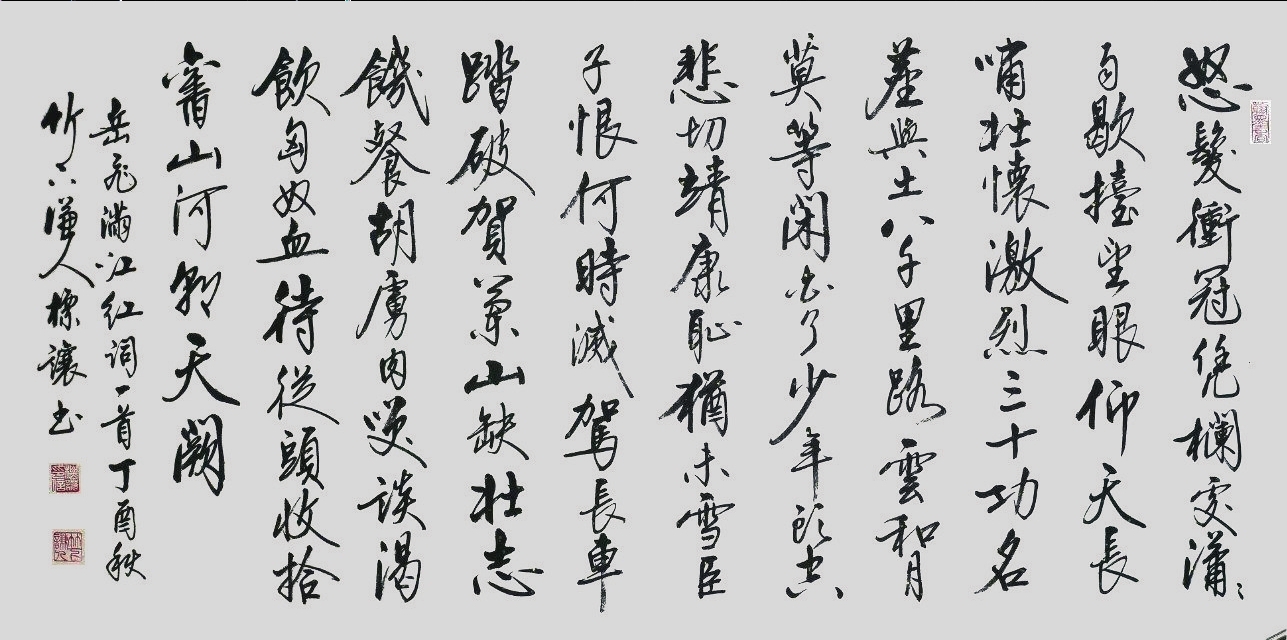 怒髮衝冠凭欄處瀟々
雨歇擡望眼仰天長
嘯壯懷激烈三十功名
塵與土八千里路雲和月
莫等閑白了少年頭空
悲切靖康恥猶未雪臣
子恨何時滅駕長車
踏破賀蘭山缺壯志
饑餐胡虜肉笑談渴
飲匈奴血待從頭收拾
舊山河朝天闕
岳飛滿江红词一首丁酉秋
竹謙人標讓书